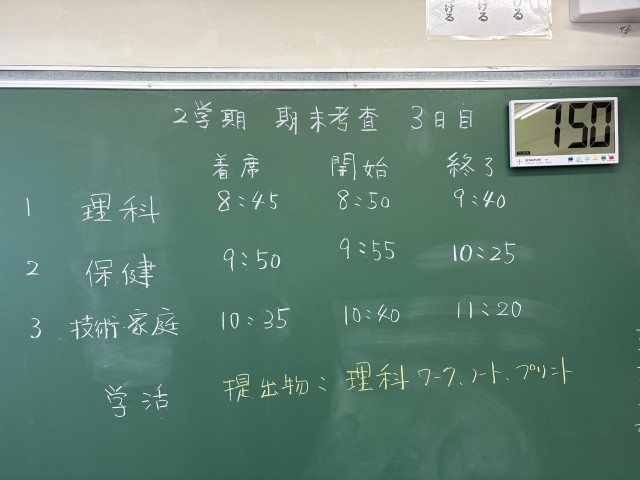 ける
ける
ける
2学期 期末考査 3日目
750
着席 開始 終了
1 理科 8:45 8:50 9:40
2 保健 9:50 9:55 10:25
3 技術・家庭 10:35 10:40 11:20
学活 提出物: 理科ワーク、ノート、プリント